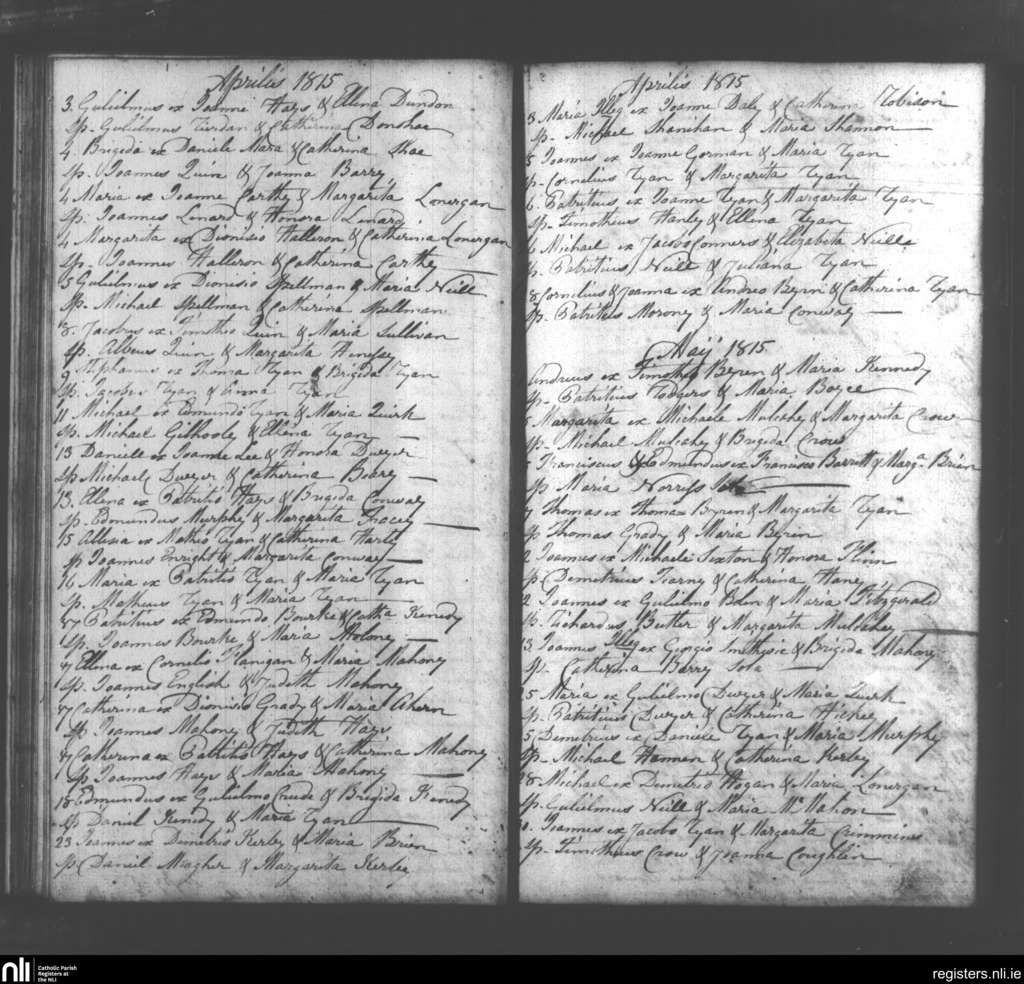 Aprilis 1815
3. Gulielmus ex Joanne Hays & Ellena Dundon
Sp. Gulielmus & Catherina Donohoe
4. Brigida ex Daniele Mara & Catherina Shae
Sp. Joannes Quin & Joanna Barry
4 Maria ex Joanne Carthy & Margarita Lonergan
Sp. Joannes Lenard & Honora Lenard
4 Margarita ex Dionisio Halleron & Catherina Lonergan
Sp. Joannes Halleron & Catherina Carthy
5 Gulielmus ex Dionisio Spellman & Maria Neill
Sp. Michael Spellman & Catherina Spellman
8. Jacobus ex Timotheo Quin & Maria Sullivan
Sp. Albeus Quin & Margarita
9 Stephanus ex Thoma Ryan & Brigida Ryan
Sp. Jacobus Ryan & Anna Ryan
11 Michael ex Edmundo Ryan & Maria Quirk
Sp. Michael Gilhooly & Ellena Ryan
13 Daniele ex Joanne Lee & Honora Dwyer
Sp Michael Dwyer & Catherina Berry
13. Ellena ex Patritio Hays & Brigida Conway
Sp. Edmundus Murphy & Margarita Tracey
15 ex Matheo Ryan & Catherina Harty
Sp Joannes Enright & Margarita Conway
16 Maria ex Patritio Ryan & Maria Ryan
Sp. Matheus Ryan & Maria Ryan
17 Patritius ex Edmundo Bourke & Catha Kenedy
Sp. Joannes Bourke & Maria Moloney
17 Ellena ex Cornelio Flanigan & Maria Mahony
Sp. Joannes English & Judith Mahony
17 Catherina ex Dionisio Grady & Maria Ahern
Sp Joannes Mahony & Judith Hays
17 Catherina ex Patritio Hays & Catherina Mahony
Sp Joannes Hays & Maria Mahony
18 Edmundus ex Gulielmo & Brigida Kenedy
Sp Daniel Kenedy & Maria Ryan
23 Joannes ex Demitrio Kerby & Maria Brien
Sp Daniel Meagher & Margarita Kerby
Aprilis 1815
3 Maria Illeg ex Joanne Daly & Catherina Robison
Sp. Michael Shanihan & Maria Shannon
5 Joannes ex Joanne Gorman & Maria Ryan
Sp. Cornelius Ryan & Margarita Ryan
6. Patritius ex Joanne Ryan & Margarita Ryan
Sp. Timotheus Hanly & Ellena Ryan
6 Michael ex Jacobo Conners & Elizabeta Neille
Sp. Patritius Neill & Juliana Ryan
8 Cornelius & Joanna ex Andreo Byrn & Catherina Ryan
Sp. Patritius Morony & Maria Conway
Maij 1815
Andreus ex Timotheo Byren & Maria Kennedy
Sp. Patritius Rodgers & Maria Boyce
Margarita ex Michaele Mulcahy & Margarita Crow
Sp. Michael Mulcahy & Brigida Crow
Franciscus & Edmundus ex Francisco Barrett & Marga Brien
Sp Maria Norriss Sola
7 Thomas ex Thoma Byren & Margarita Ryan
Sp Thomas Grady & Maria Byren
2 Joannes ex Michaele Sexton & Honora Flinn
Sp Demetrius Kearny & Catherina Haney
2 Joannes ex Gulielmo & Maria Fitzgerald
Sp. Richardus Butler & Margarita Mulcahy
3. Joannes Illeg ex Georgio Smithsie & Brigida Mahony
Sp. Catherina Barry Sola
25 Maria ex Gulielmo Dwyer & Maria Quirk
Sp. Patritius Dwyer & Catherina Hickey
5 Demetrius ex Daniele Ryan & Maria Murphy
Sp. Michael Hannen & Catherina Kerby
28 Michael ex Demetrio Hogan & Maria Lonergan
Sp. Gulielmus Neill & Maria McMahon
Joannes ex Jacobo Ryan & Margarita Cremmins
Sp. Timotheus Crow & Joanna Coughlin
nli
Catholic Parish
Registers at
the NLI
registers.nli.ie